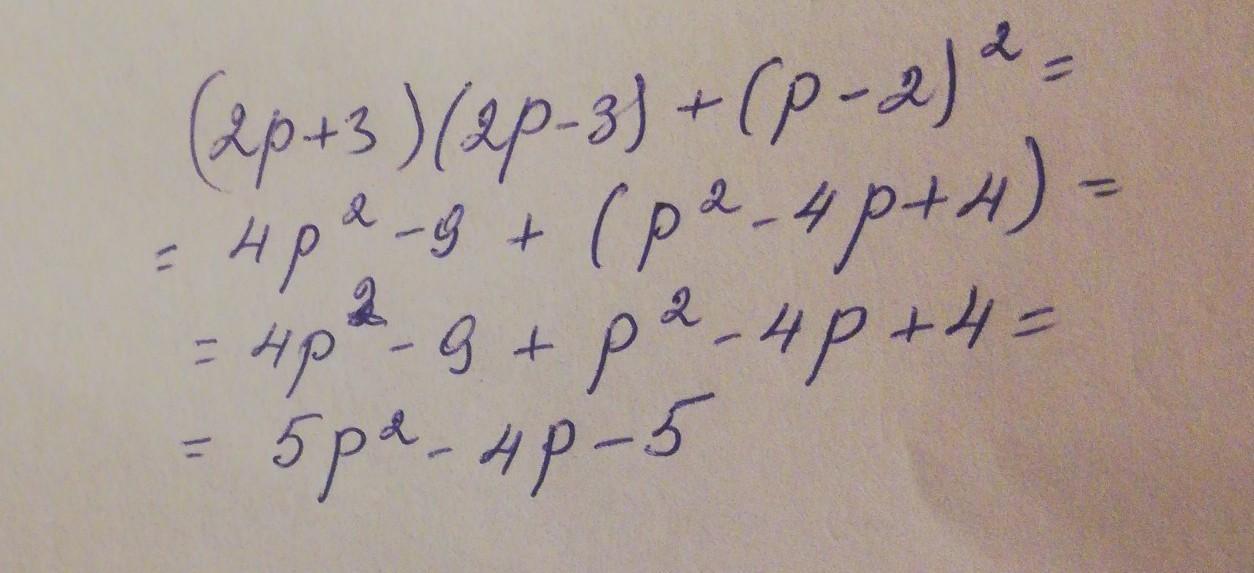 (2p+3)(2p-3)+(p-2)²=
=4p²-9+(p²-4p+4)=
=4p²-9+p²-4p+4=
=5p²-4p-5